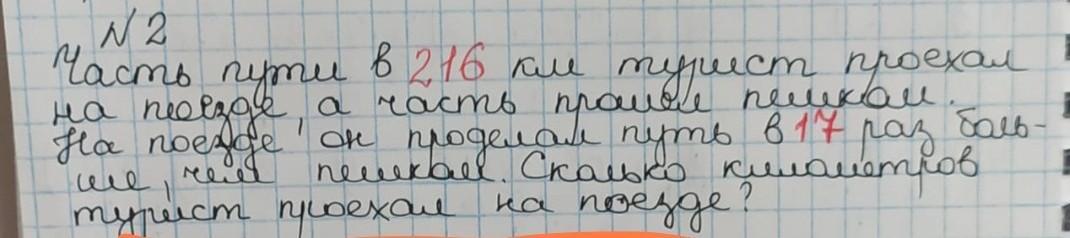 N 2
Часть пути в 216 км турист проехал
на поезде, а часть прошёл пешком.
На поезде он проделал путь в 17 раз боль-
ше, чем пешком. Сколько километров
турист проехал на поезде?